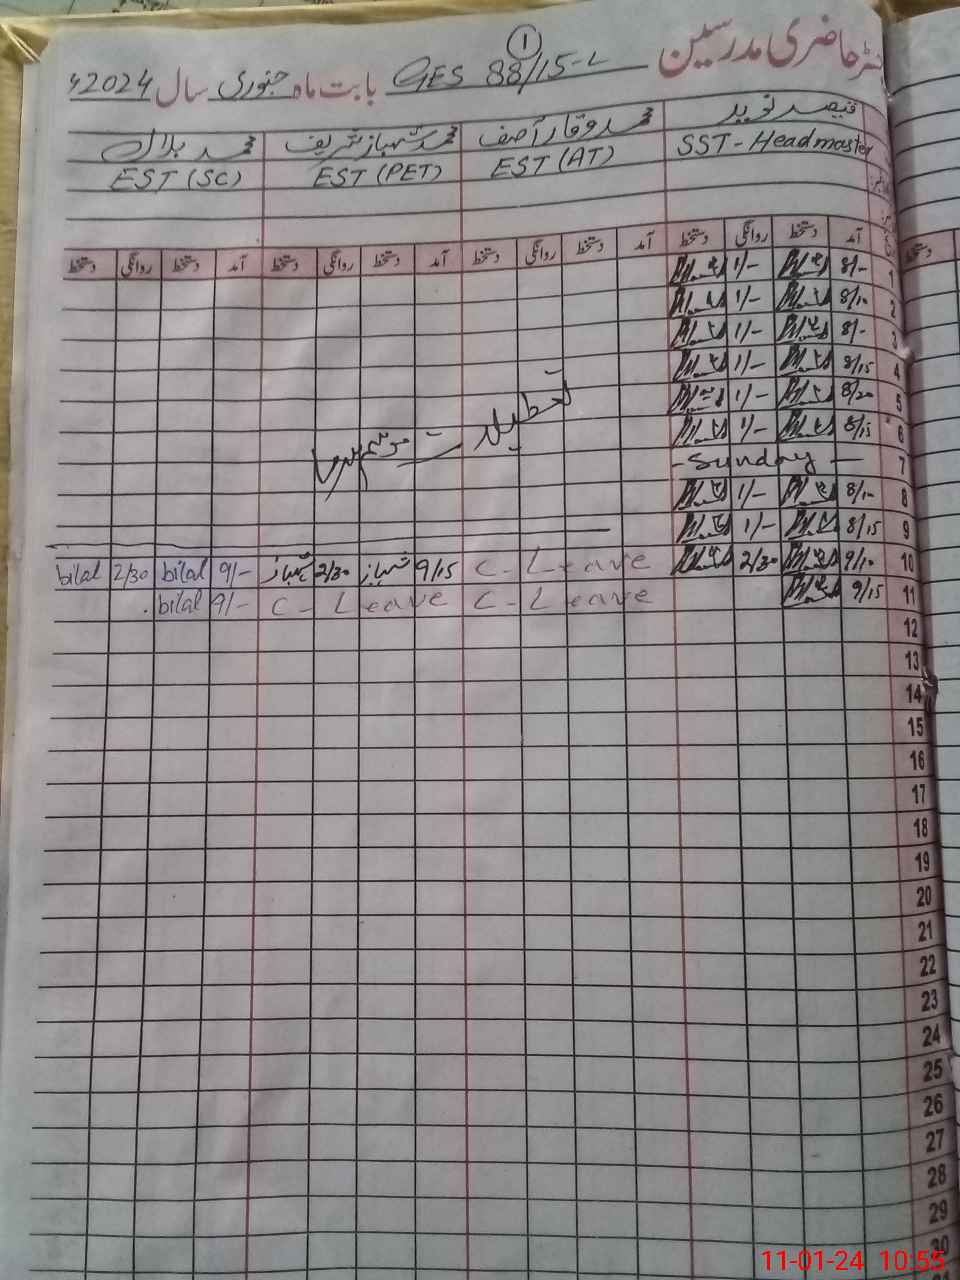 1
رجسٹر حاضری مدرسین GES 88/15-L بابت ماہ جنوری سال 2024ء
قیصر نوید محمد وقار آصف محمد شہباز شریف محمد بلال
SST - Headmaster EST (AT) EST (PET) EST (SC)
آمد دستخط روانگی دستخط آمد دستخط روانگی دستخط آمد دستخط روانگی دستخط آمد دستخط روانگی دستخط
1 8/- 1/-
2 8/10 1/-
3 8/- 1/-
4 8/15 1/-
5 8/20 1/-
6 8/15 1/-
تعطیلات موسم سرما
7 - Sunday -
8 8/10 1/-
9 8/15 1/-
10 9/10 2/30 C - Leave 9/15 شہباز 2/30 شہباز 9/- bilal 2/30 bilal
11 9/15 C - Leave C - Leave 9/- bilal
12
13
14
15
16
17
18
19
20
21
22
23
24
25
26
27
28
29
30
11-01-24 10:55